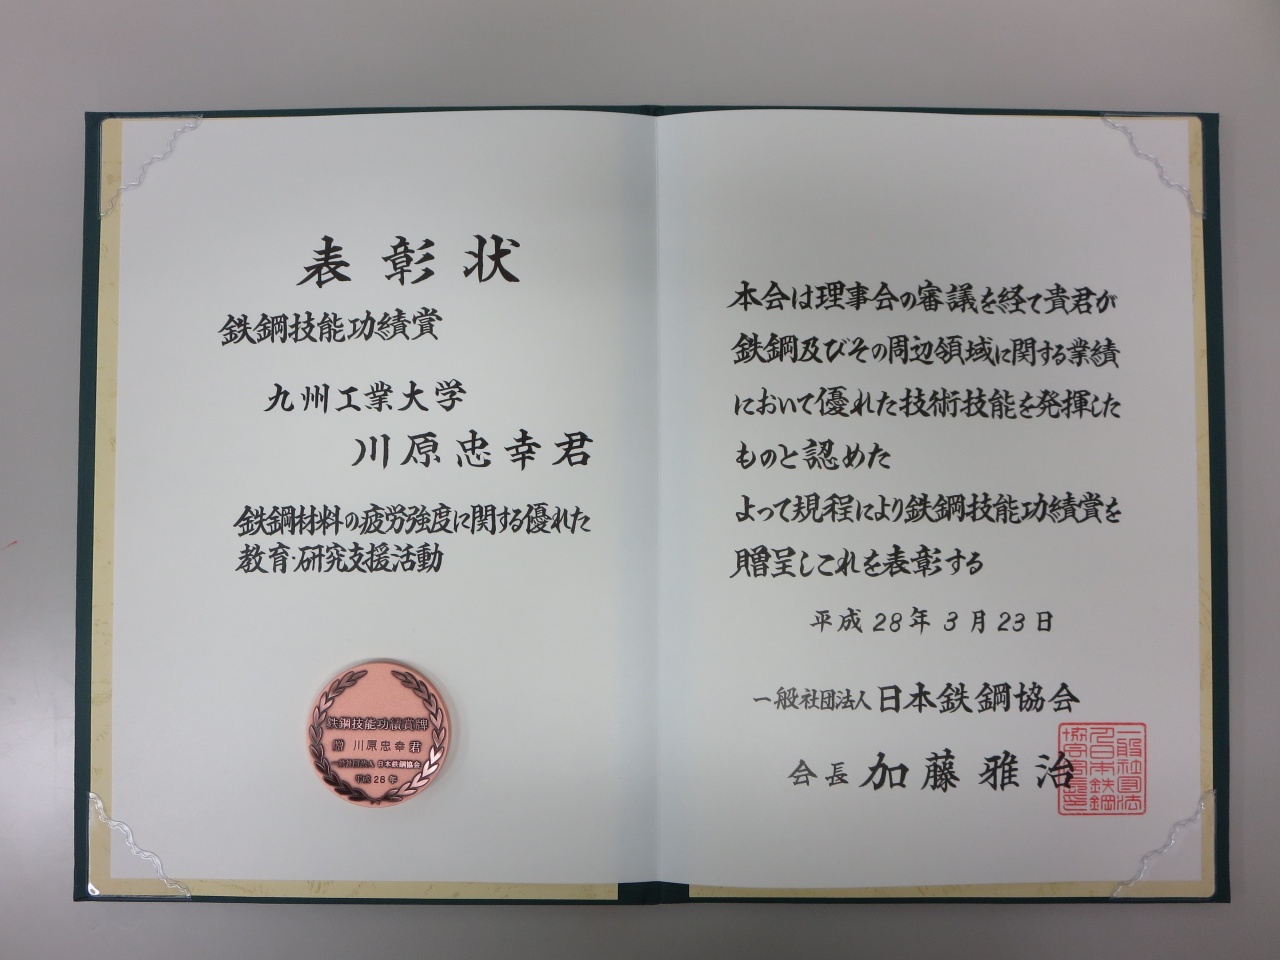 表彰状
鉄鋼技能功績賞
九州工業大学
川原忠幸君
鉄鋼材料の疲労強度に関する優れた
教育・研究支援活動
鉄鋼技能功績賞牌
贈 川原忠幸君
一般社団法人 日本鉄鋼協会
平成28年
本会は理事会の審議を経て貴君が
鉄鋼及びその周辺領域に関する業績
において優れた技術技能を発揮した
ものと認めた
よって規程により鉄鋼技能功績賞を
贈呈しこれを表彰する
平成28年3月23日
一般社団法人日本鉄鋼協会
会長 加藤雅治